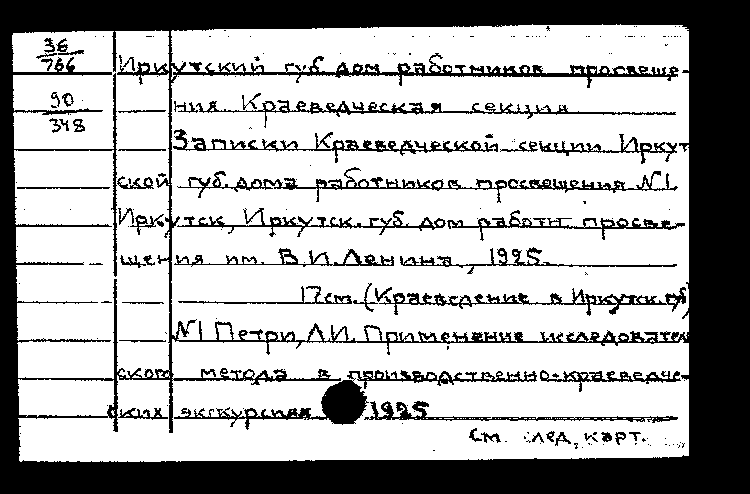 36/766
Иркутский губ. дом работников просвеще-
90/348
ния. Краеведческая секция
Записки Краеведческой секции Иркут
ской губ. дома работников просвещения №1.
Иркутск, Иркутск. губ. дом работн. просве-
щения им. В.И. Ленина, 1925.
17см. (Краеведение в Иркутск. губ)
№1 Петри, Л.И. Применение исследовател
ского метода в производственно-краеведче-
ских экскурсиях 1925
См. след. карт.